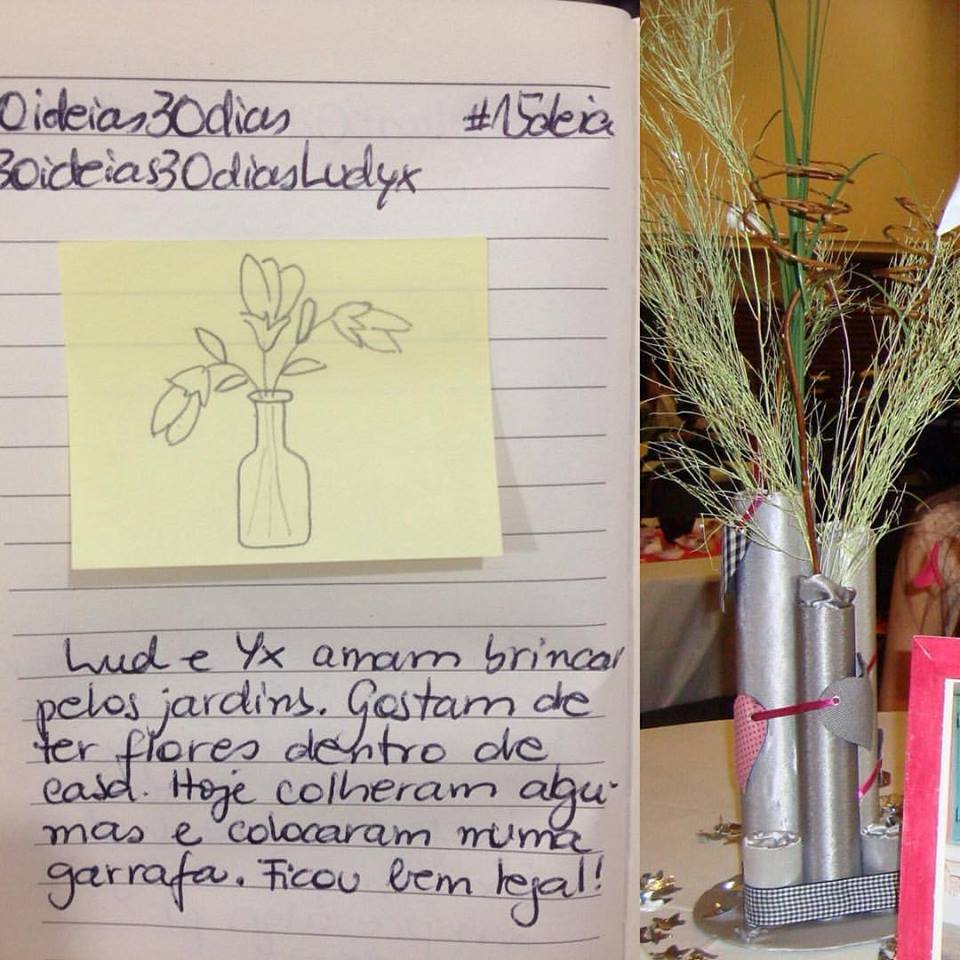 0ideias30dias #15deia
30ideias30diasLudyx
Lud e Yx amam brincar
pelos jardins. Gostam de
ter flores dentro de
casa. Hoje colheram algu-
mas e colocaram numa
garrafa. Ficou bem legal!